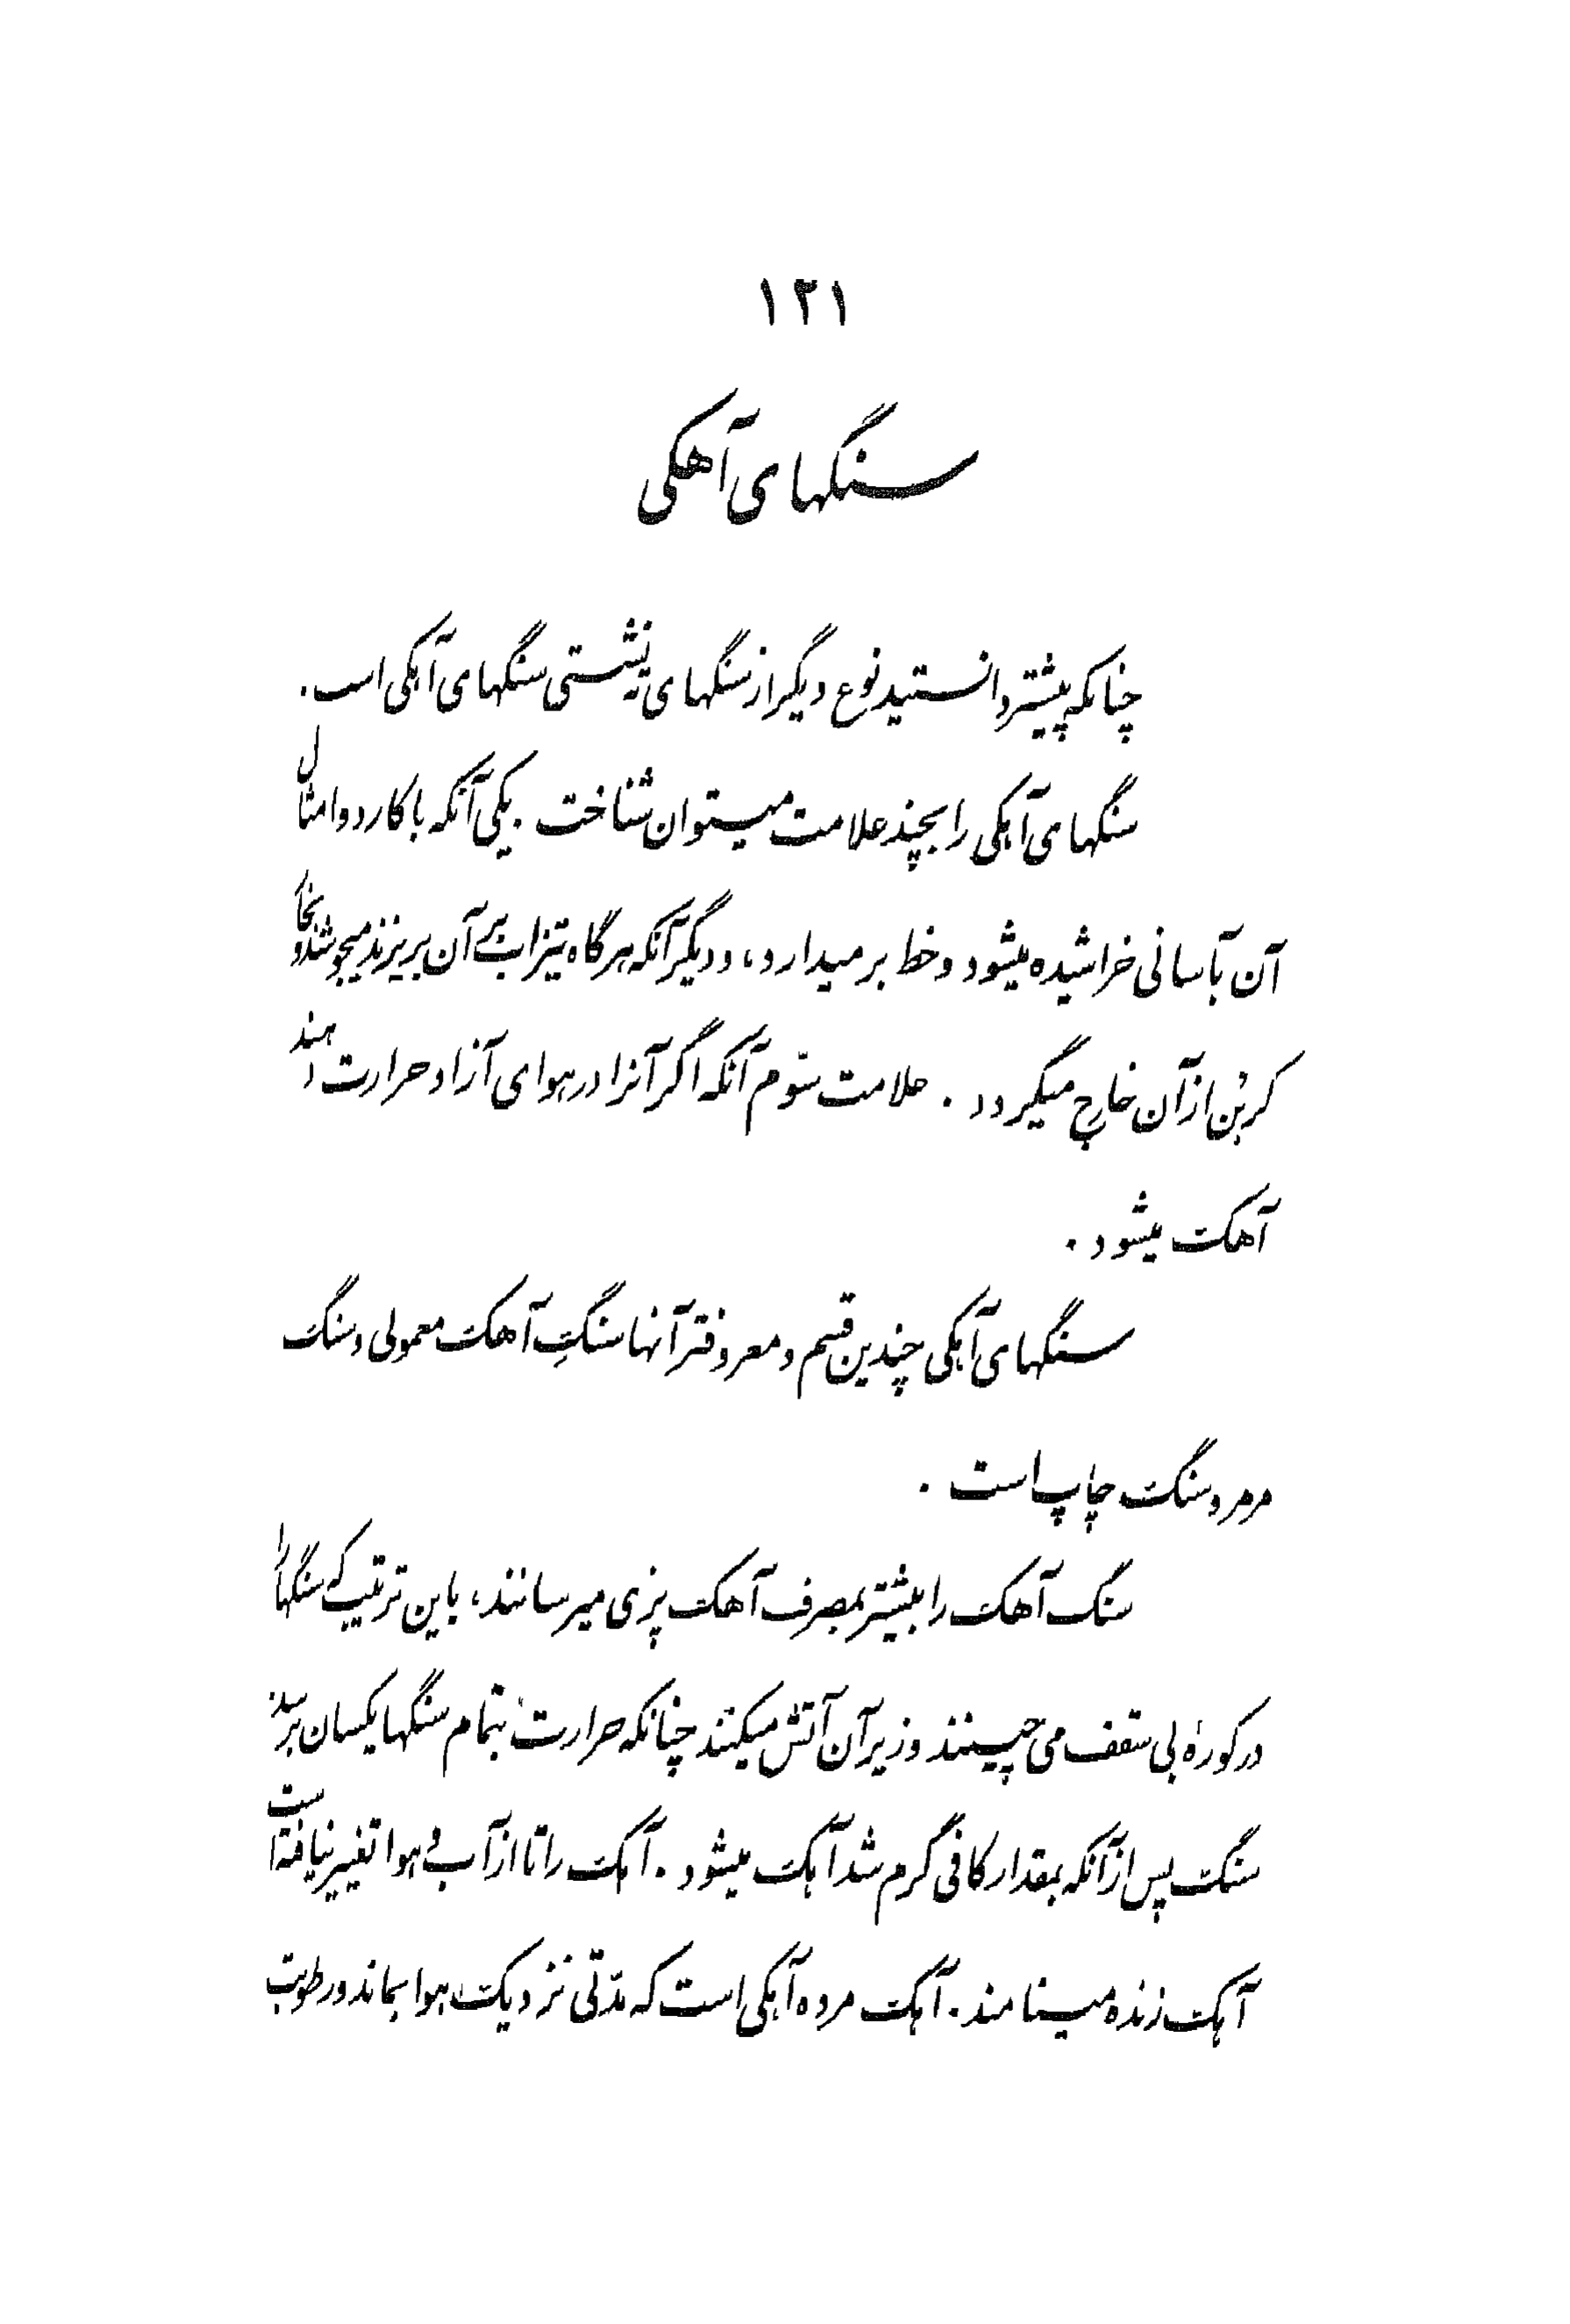 ۱۲۱
سنگهای آهکی
چنانکه پیشتر دانستید نوع دیگر از سنگهای ته‌نشستی سنگهای آهکی است.
سنگهای آهکی را بچند علامت میتوان شناخت. یکی آنکه با کارد و امثال
آن بآسانی خراشیده میشود و خط برمیدارد، و دیگر آنکه هرگاه تیزاب بر آن بریزند میجوشد و بخار
کربن از آن خارج میگردد. علامت سوّم آنکه اگر آنرا در هوای آزاد حرارت دهند
آهک میشود.
سنگهای آهکی چندین قسم و معروفتر آنها سنگِ آهک معمولی و سنگ
مرمر و سنگ چاپ است.
سنگ آهک را بیشتر بمصرف آهک پزی میرسانند، باین ترتیب که سنگها را
در کورۀ بی سقف می چینند و زیر آن آتش میکنند چنانکه حرارت بتمام سنگها یکسان برسد.
سنگ پس از آنکه بمقدار کافی گرم شد آهک میشود. آهک را تا از آب و هوا تغییر نیافته است
آهک زنده مینامند. آهک مرده آهکی است که مدّتی نزدیک هوا بماند و رطوبت